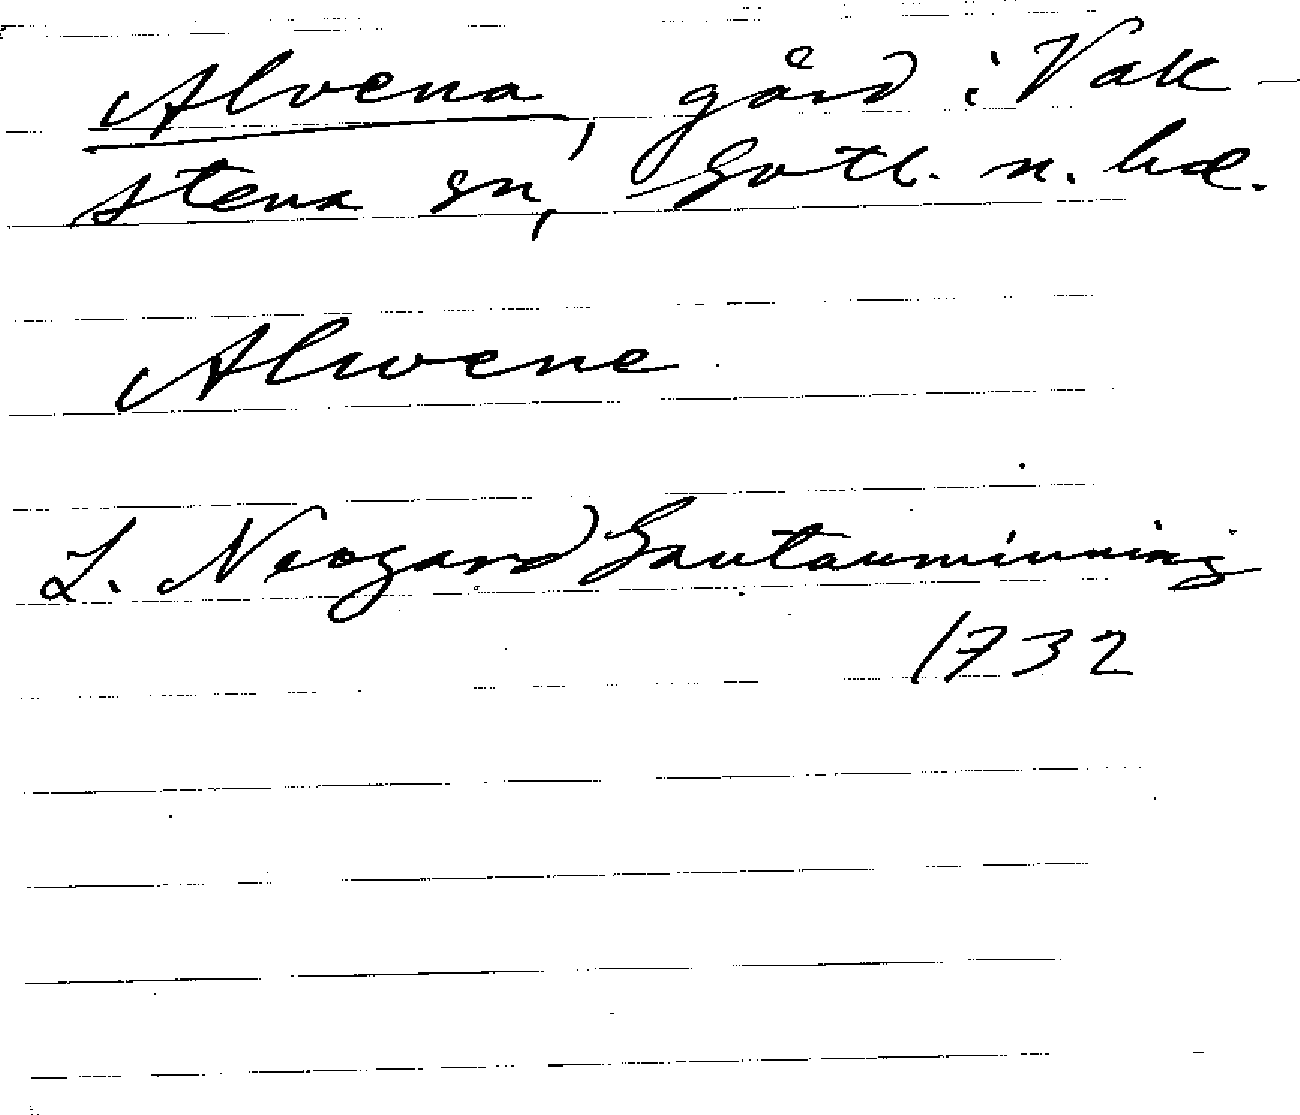 Alvena, gård i Vall-
stena sn, Gotl. n. hd.
Alwene
L. Neogard Gautauminning
1732